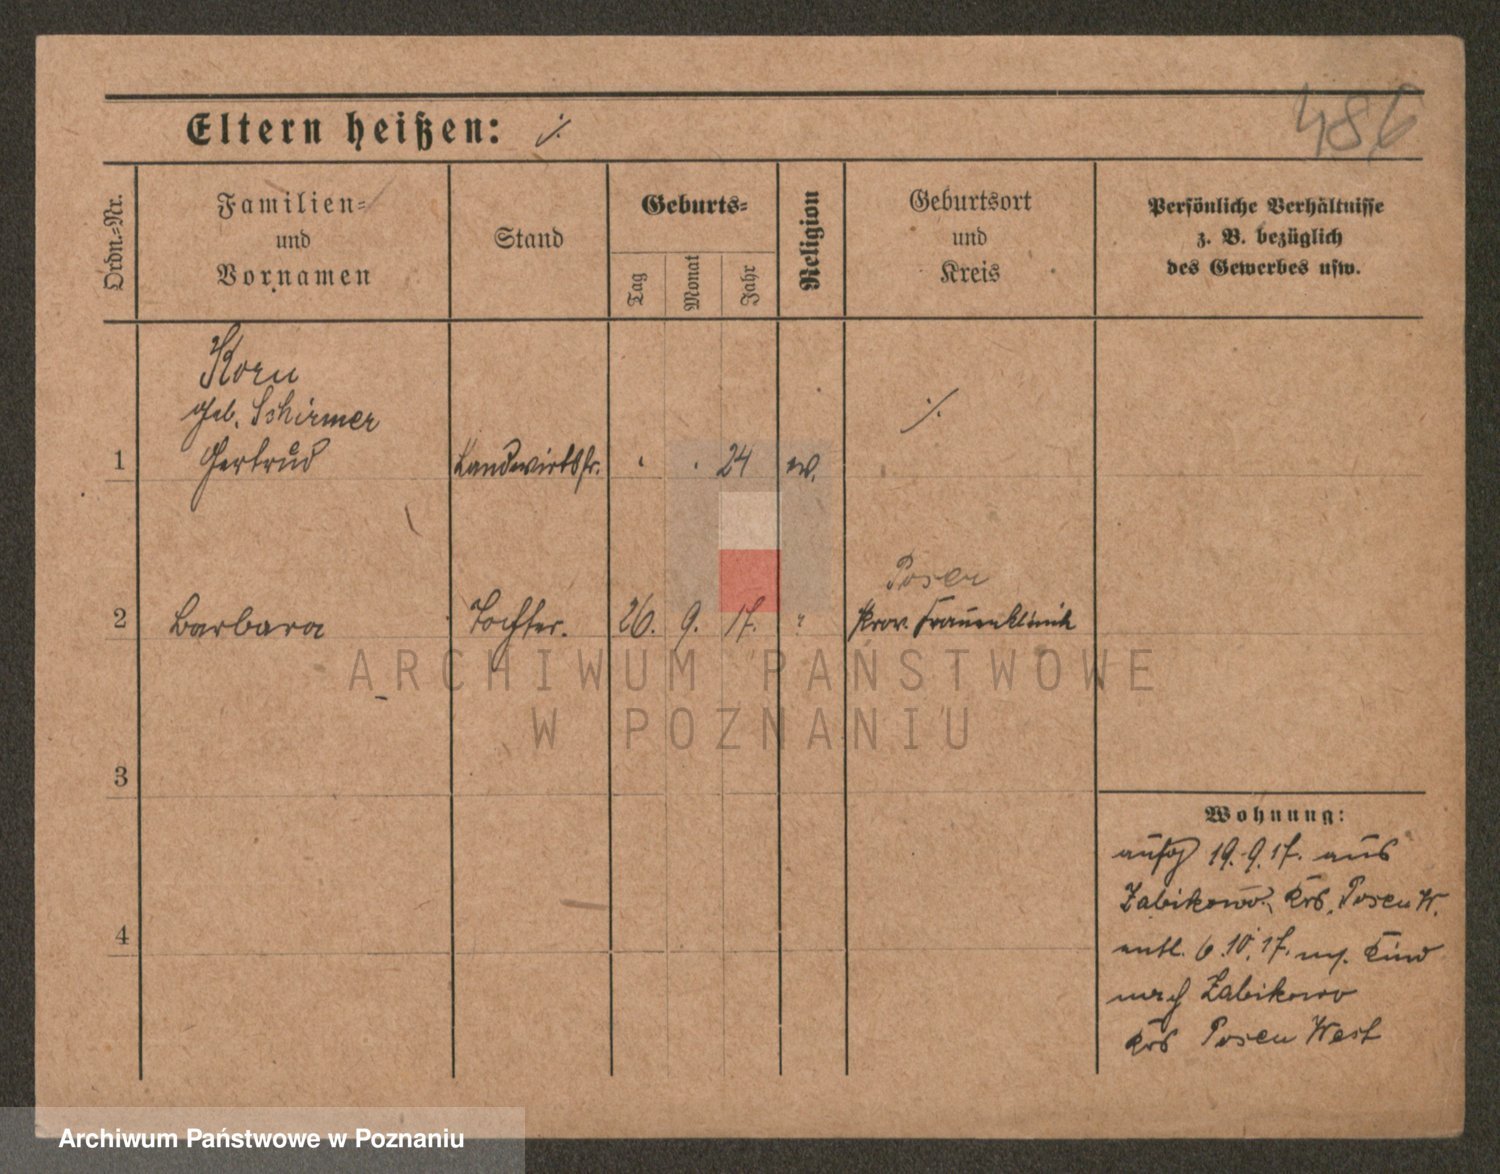 486
Eltern heißen: ·/.
Ordn.=Nr.
Familien=
und
Vornamen
Stand
Geburts=
Tag
Monat
Jahr
Religion
Geburtsort
und
Kreis
Persönliche Verhältnisse
z. B. bezüglich
des Gewerbes usw.
Korn
geb. Schirmer
1 Gertrud Landwirtsfr. 24 ev. ·/.
Posen
2 Barbara Tochter. 26. 9. 17. " Prov. Frauenklinik
3
4
Wohnung:
aufg 19.9.17. aus
Zabikowo, Krs. Posen W.
entl. 6.10.17. m. Kind
nach Zabikowo
Krs Posen West
ARCHIWUM PAŃSTWOWE
W POZNANIU
Archiwum Państwowe w Poznaniu